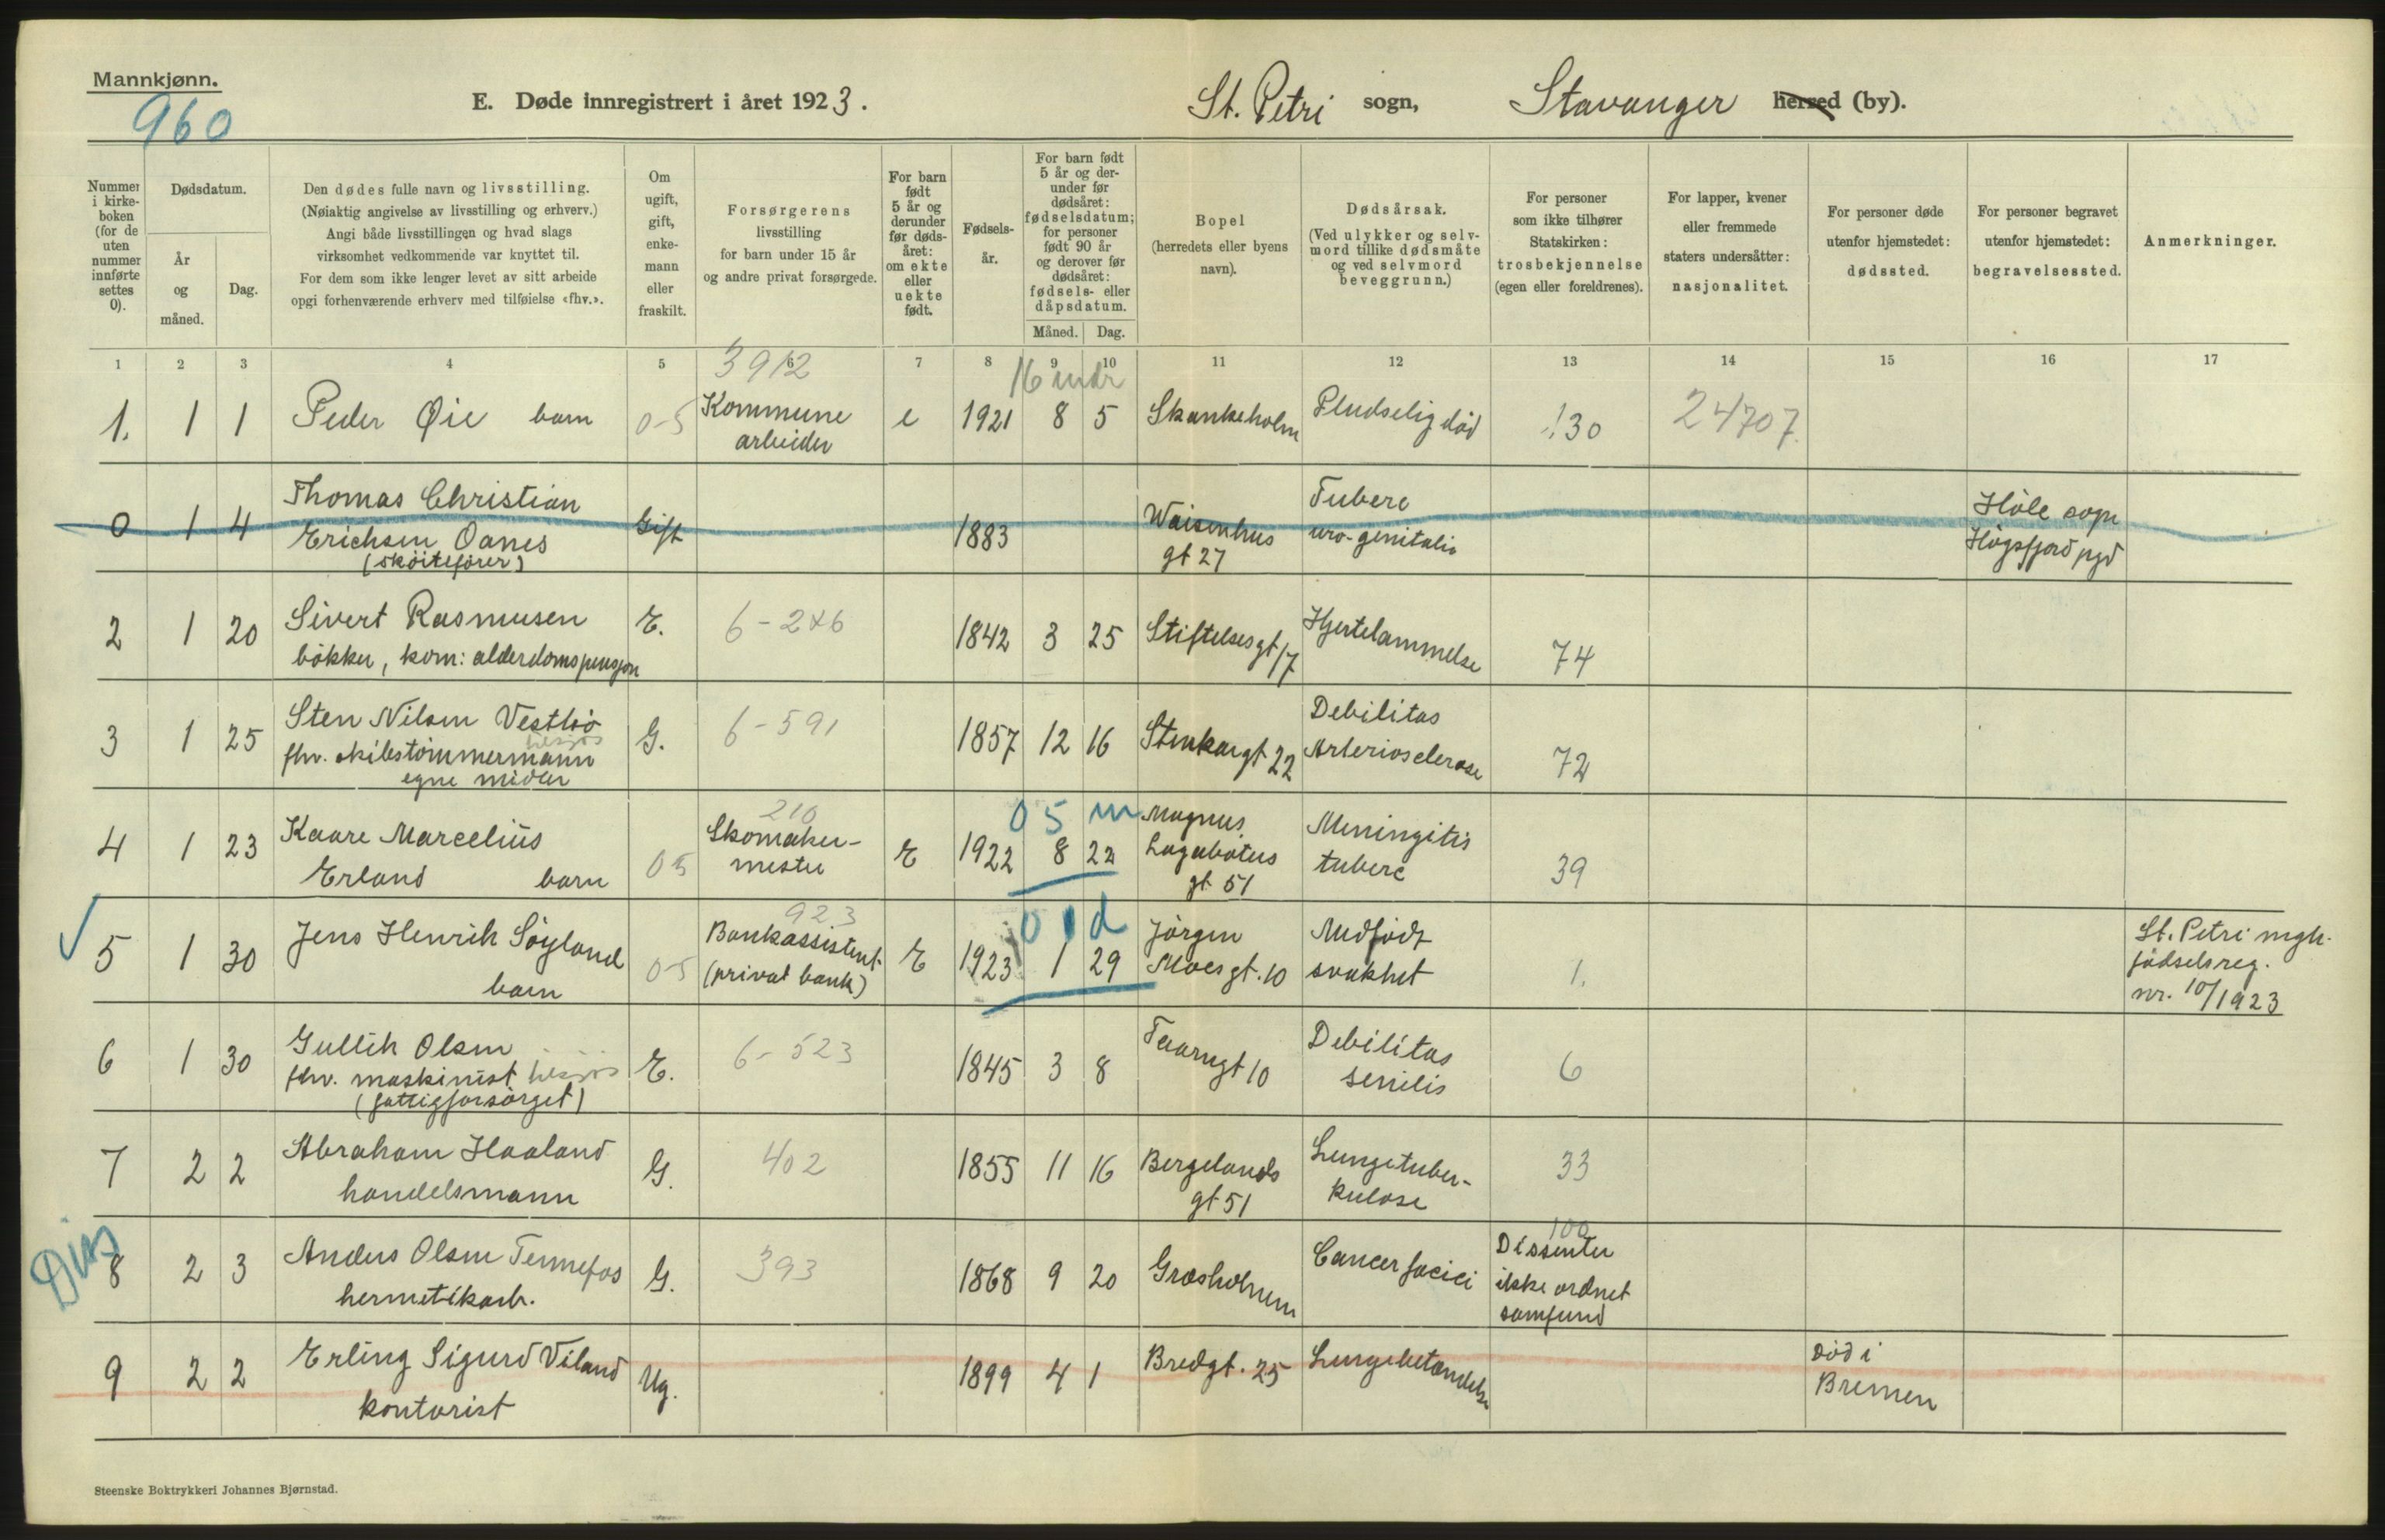 Mannkjønn.
960
E. Døde innregistrert i året 1923. St. Petri sogn, Stavanger herred (by).
Nummer i kirkeboken (for de uten nummer innførte settes 0).
Dødsdatum.
År og måned.
Dag.
Den dødes fulle navn og livsstilling.
(Nøiaktig angivelse av livsstilling og erhverv.)
Angi både livsstillingen og hvad slags
virksomhet vedkommende var knyttet til.
For dem som ikke lenger levet av sitt arbeide
opgi forhenværende erhverv med tilføielse «fhv.».
Om ugift, gift, enkemann eller fraskilt.
Forsørgerens
livsstilling
for barn under 15 år
og andre privat forsørgede.
For barn født 5 år og derunder før dødsåret: om ekte eller uekte født.
Fødselsår.
For barn født 5 år og derunder før dødsåret: fødselsdatum; for personer født 90 år og derover før dødsåret: fødsels- eller dåpsdatum.
Måned. Dag.
Bopel
(herredets eller byens
navn).
Dødsårsak.
(Ved ulykker og selvmord tillike dødsmåte og ved selvmord beveggrunn.)
For personer
som ikke tilhører
Statskirken:
trosbekjennelse
(egen eller foreldrenes).
For lapper, kvener
eller fremmede
staters undersåtter:
nasjonalitet.
For personer døde
utenfor hjemstedet:
dødssted.
For personer begravet
utenfor hjemstedet:
begravelsessted.
Anmerkninger.
1 2 3 4 5 6 7 8 9 10 11 12 13 14 15 16 17
3912 16 mdr
1. 1 1 Peder Øie barn 0-5 Kommune arbeider e 1921 8 5 Skankeholm Pludselig død 130 24707.
0 1 4 Thomas Christian Erichsen Oanes (skøitefører) Gift 1883 Waisenhus gt 27 Tuberc uro-genitalis Høle sogn Høgsfjord pgd
2 1 20 Sivert Rasmusen bøkker, kom: alderdomspensjon E. 6-246 1842 3 25 Stiftelsesgt 17 Hjertelammelse 74
3 1 25 Sten Nilsen Vestbø fhv. skibstømmermann egne midler G. 6-591 1857 12 16 Stenkargt 22 Debilitas Arteriosclerose 72
4 1 23 Kaare Marcelius Erland barn 05 210 Skomakermester E 1922 05 m 8 22 Magnus Lagabøtus gt 51 Meningitis tuberc 39
5 1 30 Jens Henrik Søyland barn 0-5 923 Bankassistent (privat bank) E 1923 01d 1 29 Jörgen Moes gt. 10 Medfödt svakhet 1. St. Petri mgh. födselsreg. nr. 10/1923
6 1 30 Gullik Olsen fhv. maskinist (fattigforsørget) E. 6-523 1845 3 8 Taarngt 10 Debilitas senilis 6
7 2 2 Abraham Haaland handelsmann G. 402 1855 11 16 Bergelands gt 51 Lungetuberkulose 33
Diss
8 2 3 Anders Olsen Tennefos hermetikarb. G. 393 1868 9 20 Græsholmen Cancer faciei 100 Dissenter ikke ordnet samfund
9 2 2 Erling Sigurd Viland kontorist Ug. 1899 4 1 Bredgt. 25 Lungebetændelse Död i Bremen
Steenske Boktrykkeri Johannes Bjørnstad.